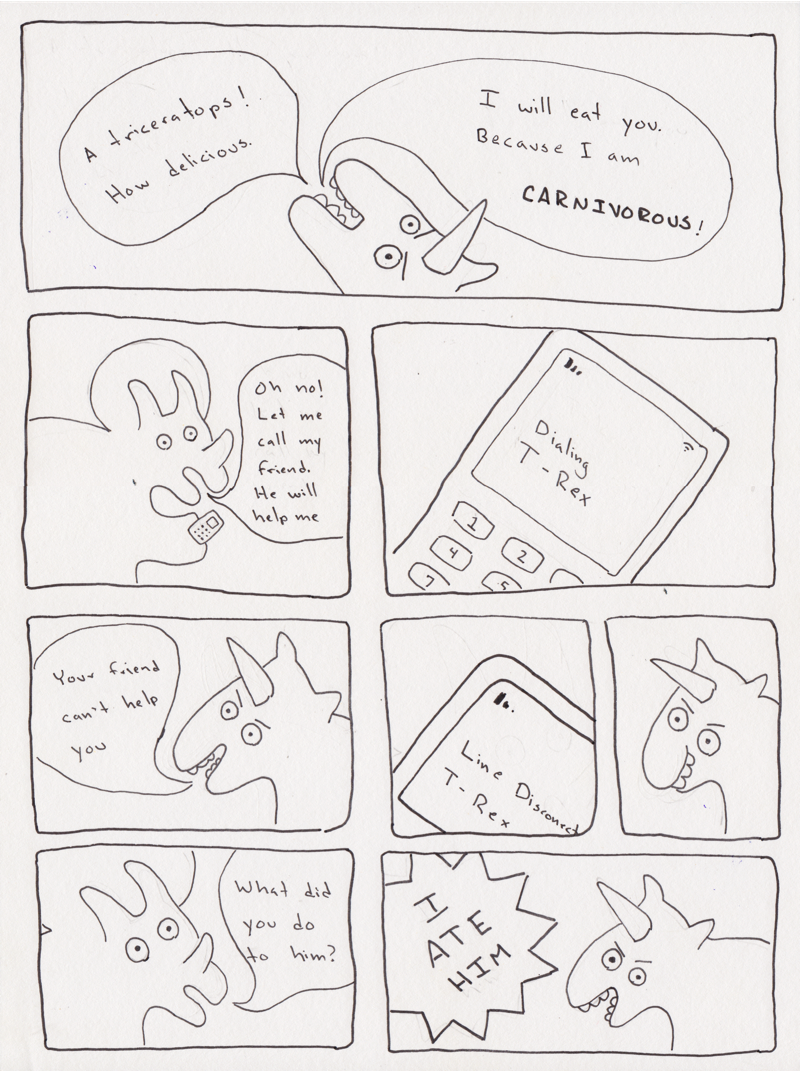 A triceratops!
How delicious.
I will eat you.
Because I am
CARNIVOROUS!
Oh no!
Let me
call my
friend.
He will
help me
Dialing
T-Rex
1
4
2
7
5
Your friend
can't help
you
Line Disconnect
T-Rex
What did
you do
to him?
I
ATE
HIM